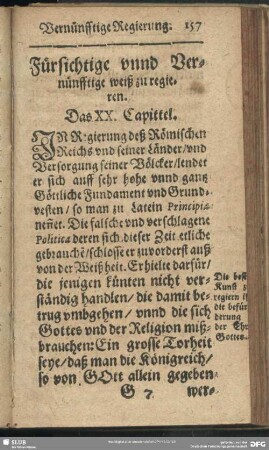 Vernünfftige Regierung. 157
Fürsichtige vnnd Ver-
nünfftige weiß zu regie-
ren.
Das XX. Capittel.
IN Regierung deß Römischen
Reichs vnd seiner Länder/vnd
Versorgung seiner Völcker/lendet
er sich auff sehr hohe vnnd gantz
Göttliche Fundament vnd Grund-
vesten/ so man zu Latein Principia
neñet. Die falsche vnd verschlagene
Politica deren sich dieser Zeit etliche
gebrauchē/schlosse er zuvorderst auß
von der Weißheit. Er hielte darfür/
die jenigen künten nicht ver-
ständig handlen/ die damit be-
trug vmbgehen/ vnnd die sich
Gottes vnd der Religion miß-
brauchen: Ein grosse Torheit
seye/ daß man die Königreich/
so von GOtt allein gegeben
G 7 wer-
Die best
Kunst z
regiern i
die beför
derung
der Ehr
Gottes.
SLUB